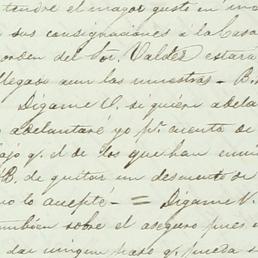 tendré el mayor gusto en
sus consignaciones a la Casa
orden del Sor. Valdes estará
llegado aun las muestras - B.
Digame V. si quiere adela
adelantaré yo pr. cuenta de
q. d de los que han
B. de quitar un descuento de
no lo acepté - = Digame V.
tambien sobre el aseguro pues
dar ningun paso q. pueda